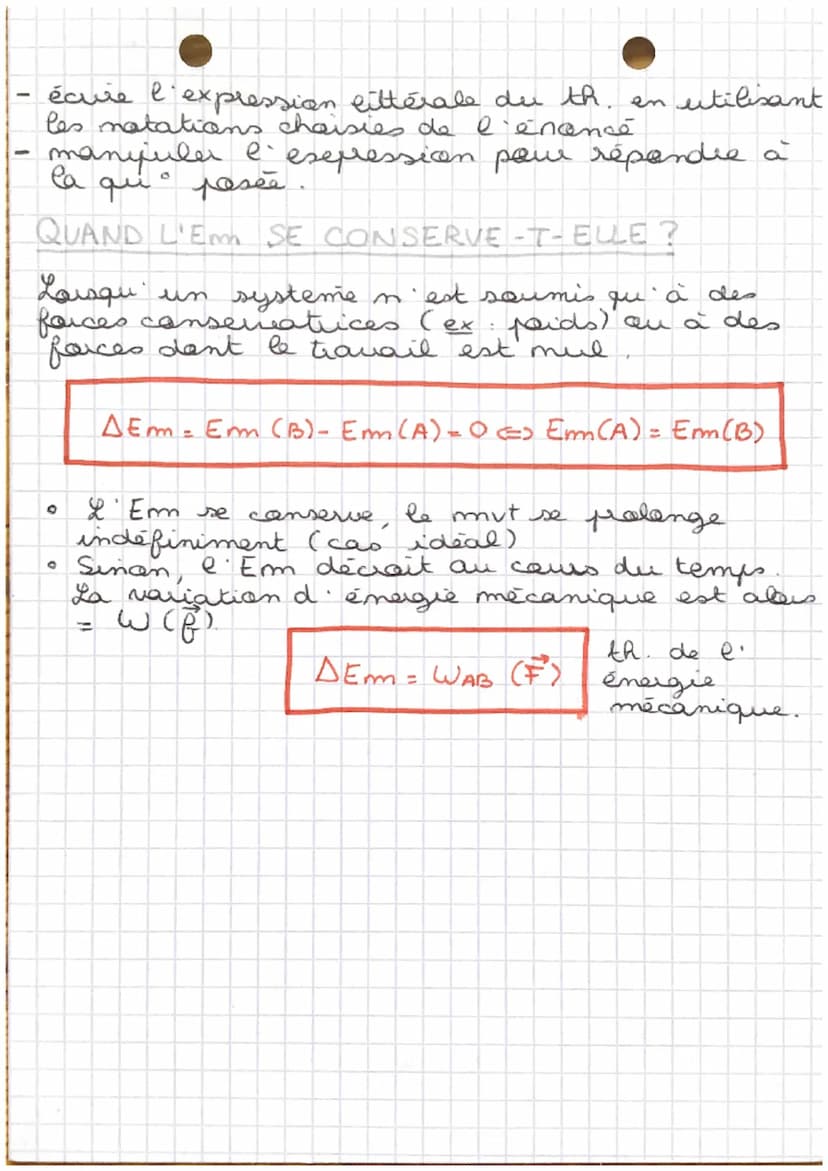 - écrire l'expression littérale du th. en utilisant
les notations choisies de l'énoncé
- manipuler l'expression pour répondre à
la qu° posée.
QUAND L'Em SE CONSERVE-T-ELLE ?
Lorsqu'un système n'est soumis qu'à des
forces conservatrices (ex : poids) ou à des
forces dont le travail est nul.
ΔEm = Em (B) - Em (A) = 0 <=> Em (A) = Em (B)
• L'Em se conserve, le mvt se prolonge
indéfiniment (cas idéal)
• Sinon, l'Em décroit au cours du temps.
La variation d'énergie mécanique est alors
= W (f⃗)
ΔEm = WAB (F⃗)
th. de l'
énergie
mécanique.